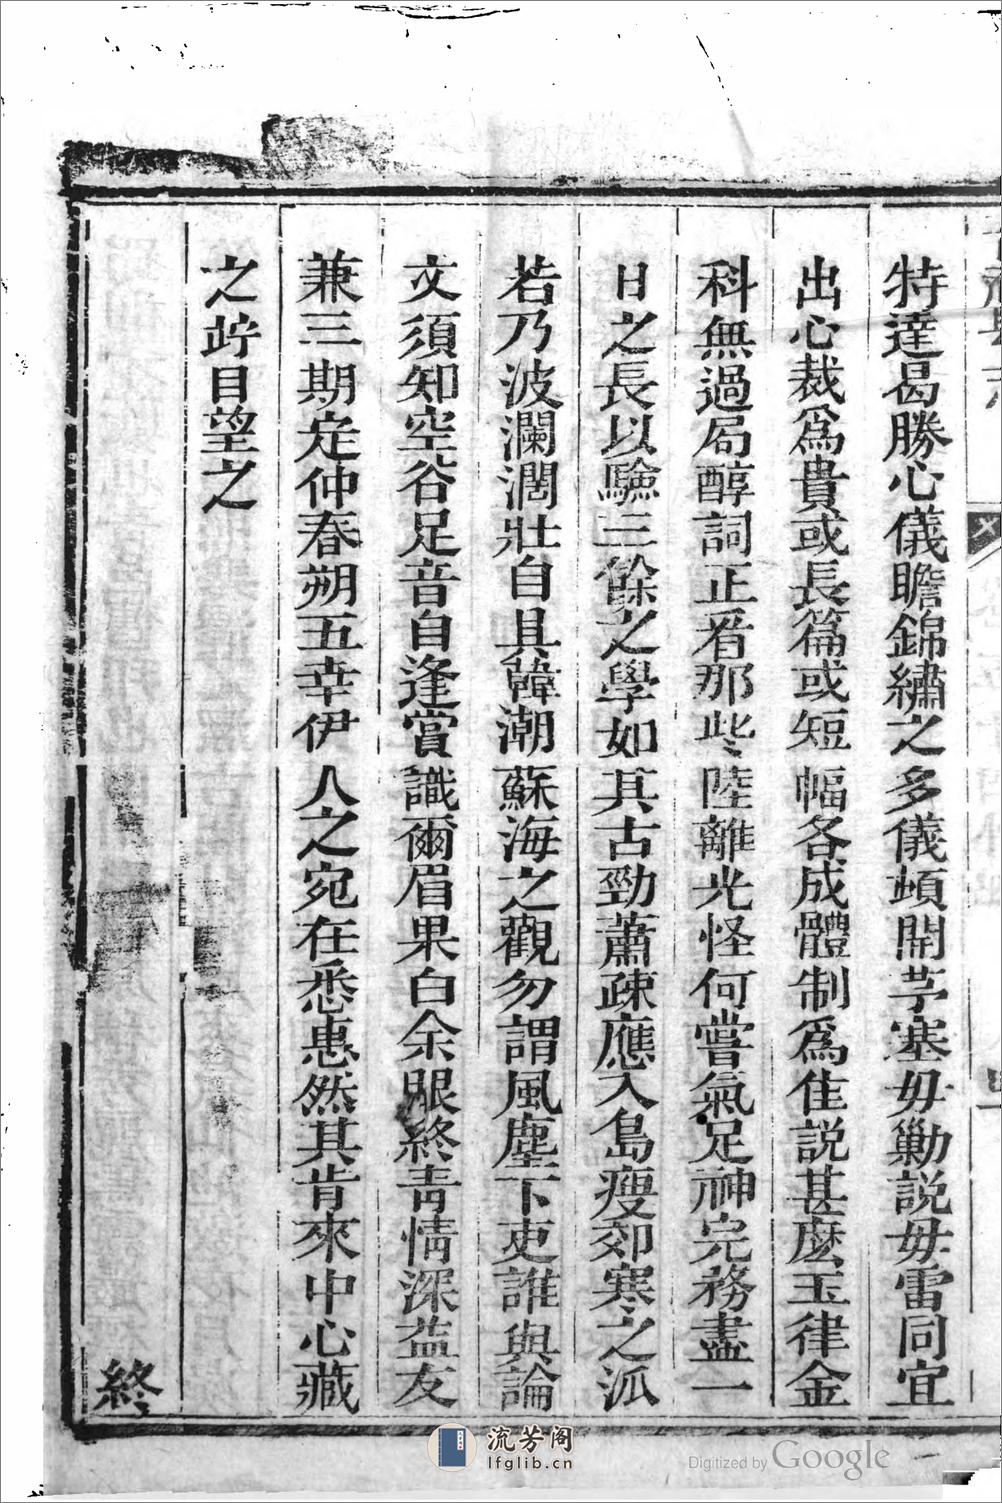 特達曷勝心儀瞻錦繡之多儀頓開茅塞毋勦説毋雷同宜
出心裁爲貴或長篇或短幅各成體制爲佳説甚麼玉律金
科無過局醇詞正看那些陸離光怪何嘗氣足神完務盡一
日之長以驗三餘之學如其古勁蕭疎應入島瘦郊寒之派
若乃波瀾濶壯自具韓潮蘇海之觀勿謂風塵下吏誰與論
文須知空谷足音自逢賞識爾眉果白余眼終青情深益友
兼三期定仲春朔五幸伊人之宛在悉惠然其肯來中心藏
之跱目望之
終
流芳阁
lfglib.cn
Digitized by Google